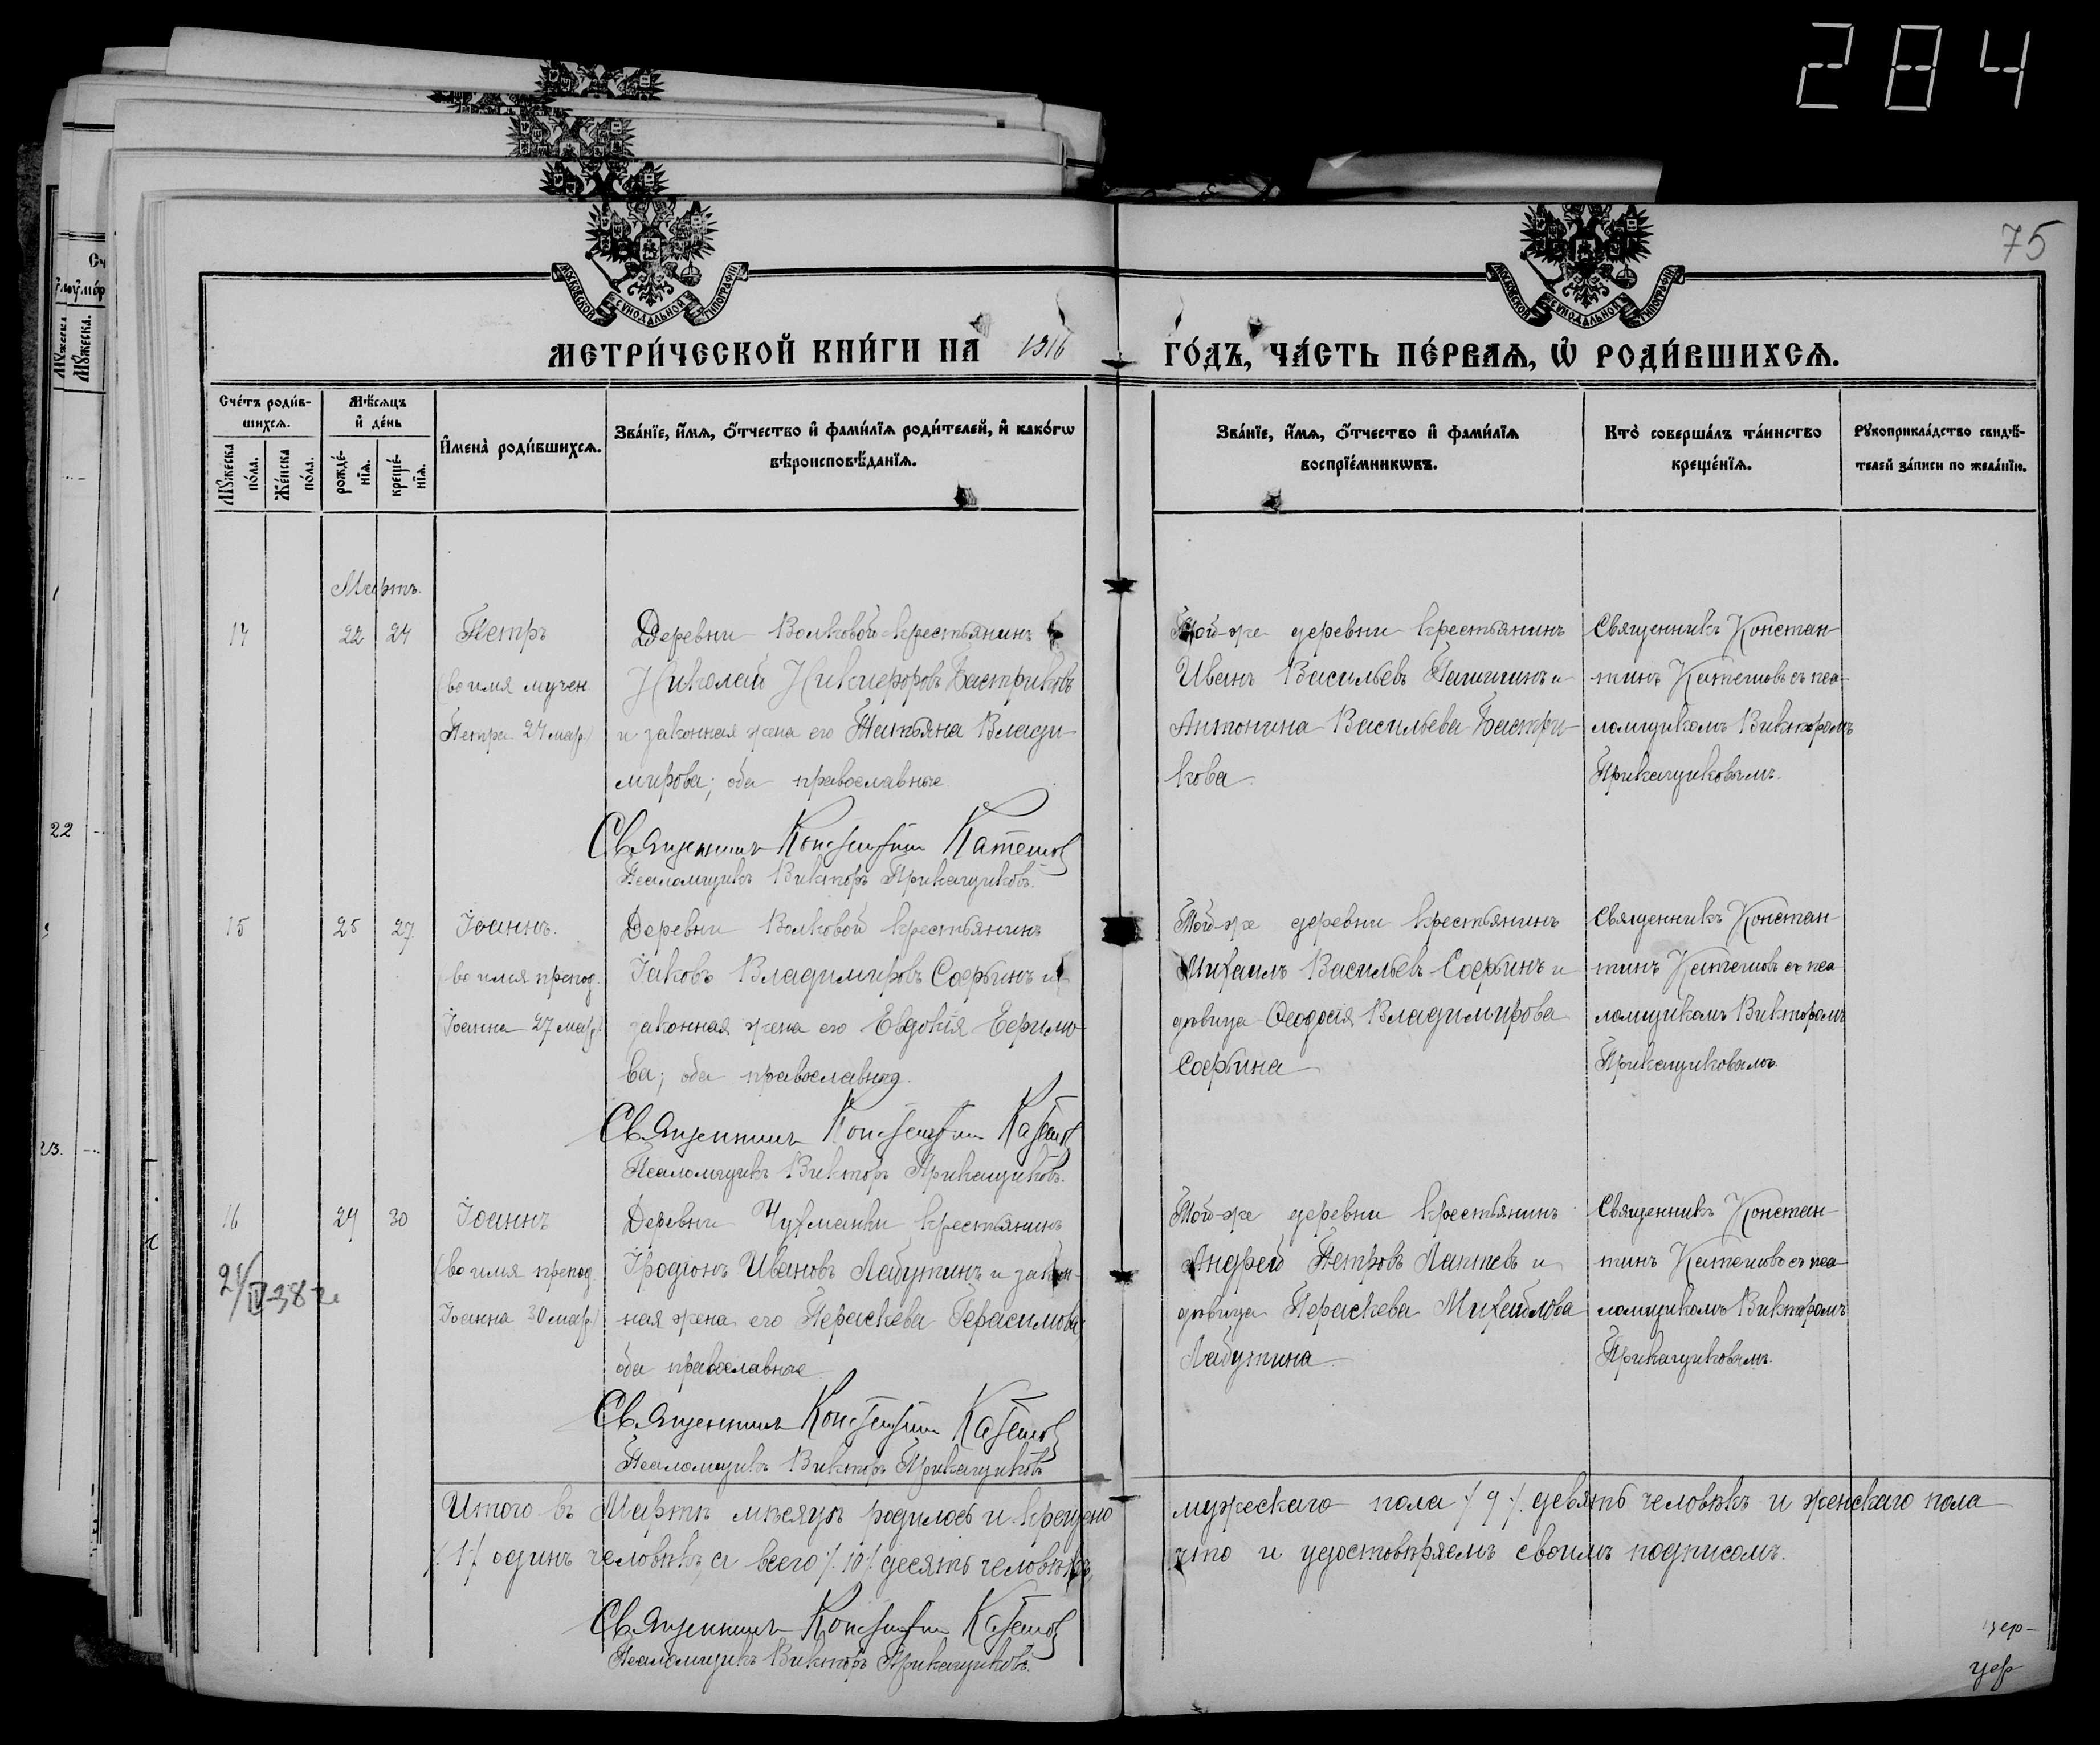 284
75
МЕТРИ́ЧЕСКОЙ КНИ́ГИ НА 1916 ГО́ДЪ, ЧА́СТЬ ПЕ́РВАѦ, Ѽ РОДИ́ВШИХСѦ.
МОСКОВСКОЙ СѴНОДАЛЬНОЙ ТИПОГРАФІИ
МОСКОВСКОЙ СѴНОДАЛЬНОЙ ТИПОГРАФІИ
Сче́тъ роди́в-
шихсѧ.
Мꙋ́жеска по́ла.
Же́нска по́ла.
Мѣ́сѧцъ
и҆ де́нь
рожде́-
нїѧ.
креще́-
нїѧ.
И҆мена̀ роди́вшихсѧ.
Зва́нїе, и҆́мѧ, ѻ҆́тчество и҆ фами́лїѧ роди́телей, и҆ како́гѡ
вѣроисповѣ́данїѧ.
Зва́нїе, и҆́мѧ, ѻ҆́тчество и҆ фами́лїѧ
воспрїе́мникѡвъ.
Кто̀ соверша́лъ та́инство
креще́нїѧ.
Рꙋкоприкла́дство свидѣ́-
телей за́писи по жела́нїю.
Мартъ.
14 22 24 Петръ
(во имя мучен.
Петра 24 мар.)
Деревни Волковой крестьянинъ
Николай Никифоровъ Бастриковъ
и законная жена его Татьяна Влади-
мирова; оба православные.
Священникъ Константин Катешов
Псаломщикъ Викторъ Прикащиковъ.
Той-же деревни крестьянинъ
Иванъ Васильевъ Паншинъ и
Антонина Васильева Бастри-
кова.
Священникъ Констан-
тинъ Катешовъ съ пса-
ломщикомъ Викторомъ
Прикащиковымъ.
15 25 27 Іоаннъ.
(во имя препод.
Іоанна 27 мар.)
Деревни Волковой крестьянинъ
Іаковъ Владимировъ Соербинъ и
законная жена его Евдокія Ефимо-
ва; оба православные.
Священникъ Константин Катешов
Псаломщикъ Викторъ Прикащиковъ.
Той-же деревни крестьянинъ
Михаилъ Васильевъ Соербинъ и
дѣвица Ѳеодосія Владимирова
Соербина
Священникъ Констан-
тинъ Катешовъ съ пса-
ломщикомъ Викторомъ
Прикащиковымъ.
16 29 30 Іоаннъ
(во имя препод.
Іоанна 30 мар.)
21/IV-38 г.
Деревни Чухманки крестьянинъ
Иродіонъ Ивановъ Лабутинъ и закон-
ная жена его Параскева Герасимова;
оба православные.
Священникъ Константин Катешов
Псаломщикъ Викторъ Прикащиковъ
Той-же деревни крестьянинъ
Андрей Петровъ Лаптевъ и
дѣвица Параскева Михайлова
Лабутина
Священникъ Констан-
тинъ Катешовъ съ пса-
ломщикомъ Викторомъ
Прикащиковымъ.
Итого въ Мартѣ мѣсяцѣ родилось и крещено мужескаго пола /9/. девять человѣкъ и женскаго пола
/1/ одинъ человѣкъ, а всего /.10/. десять человѣкъ, что и удостовѣряемъ своимъ подписомъ.
Священникъ Константин Катешов
Псаломщикъ Викторъ Прикащиковъ.